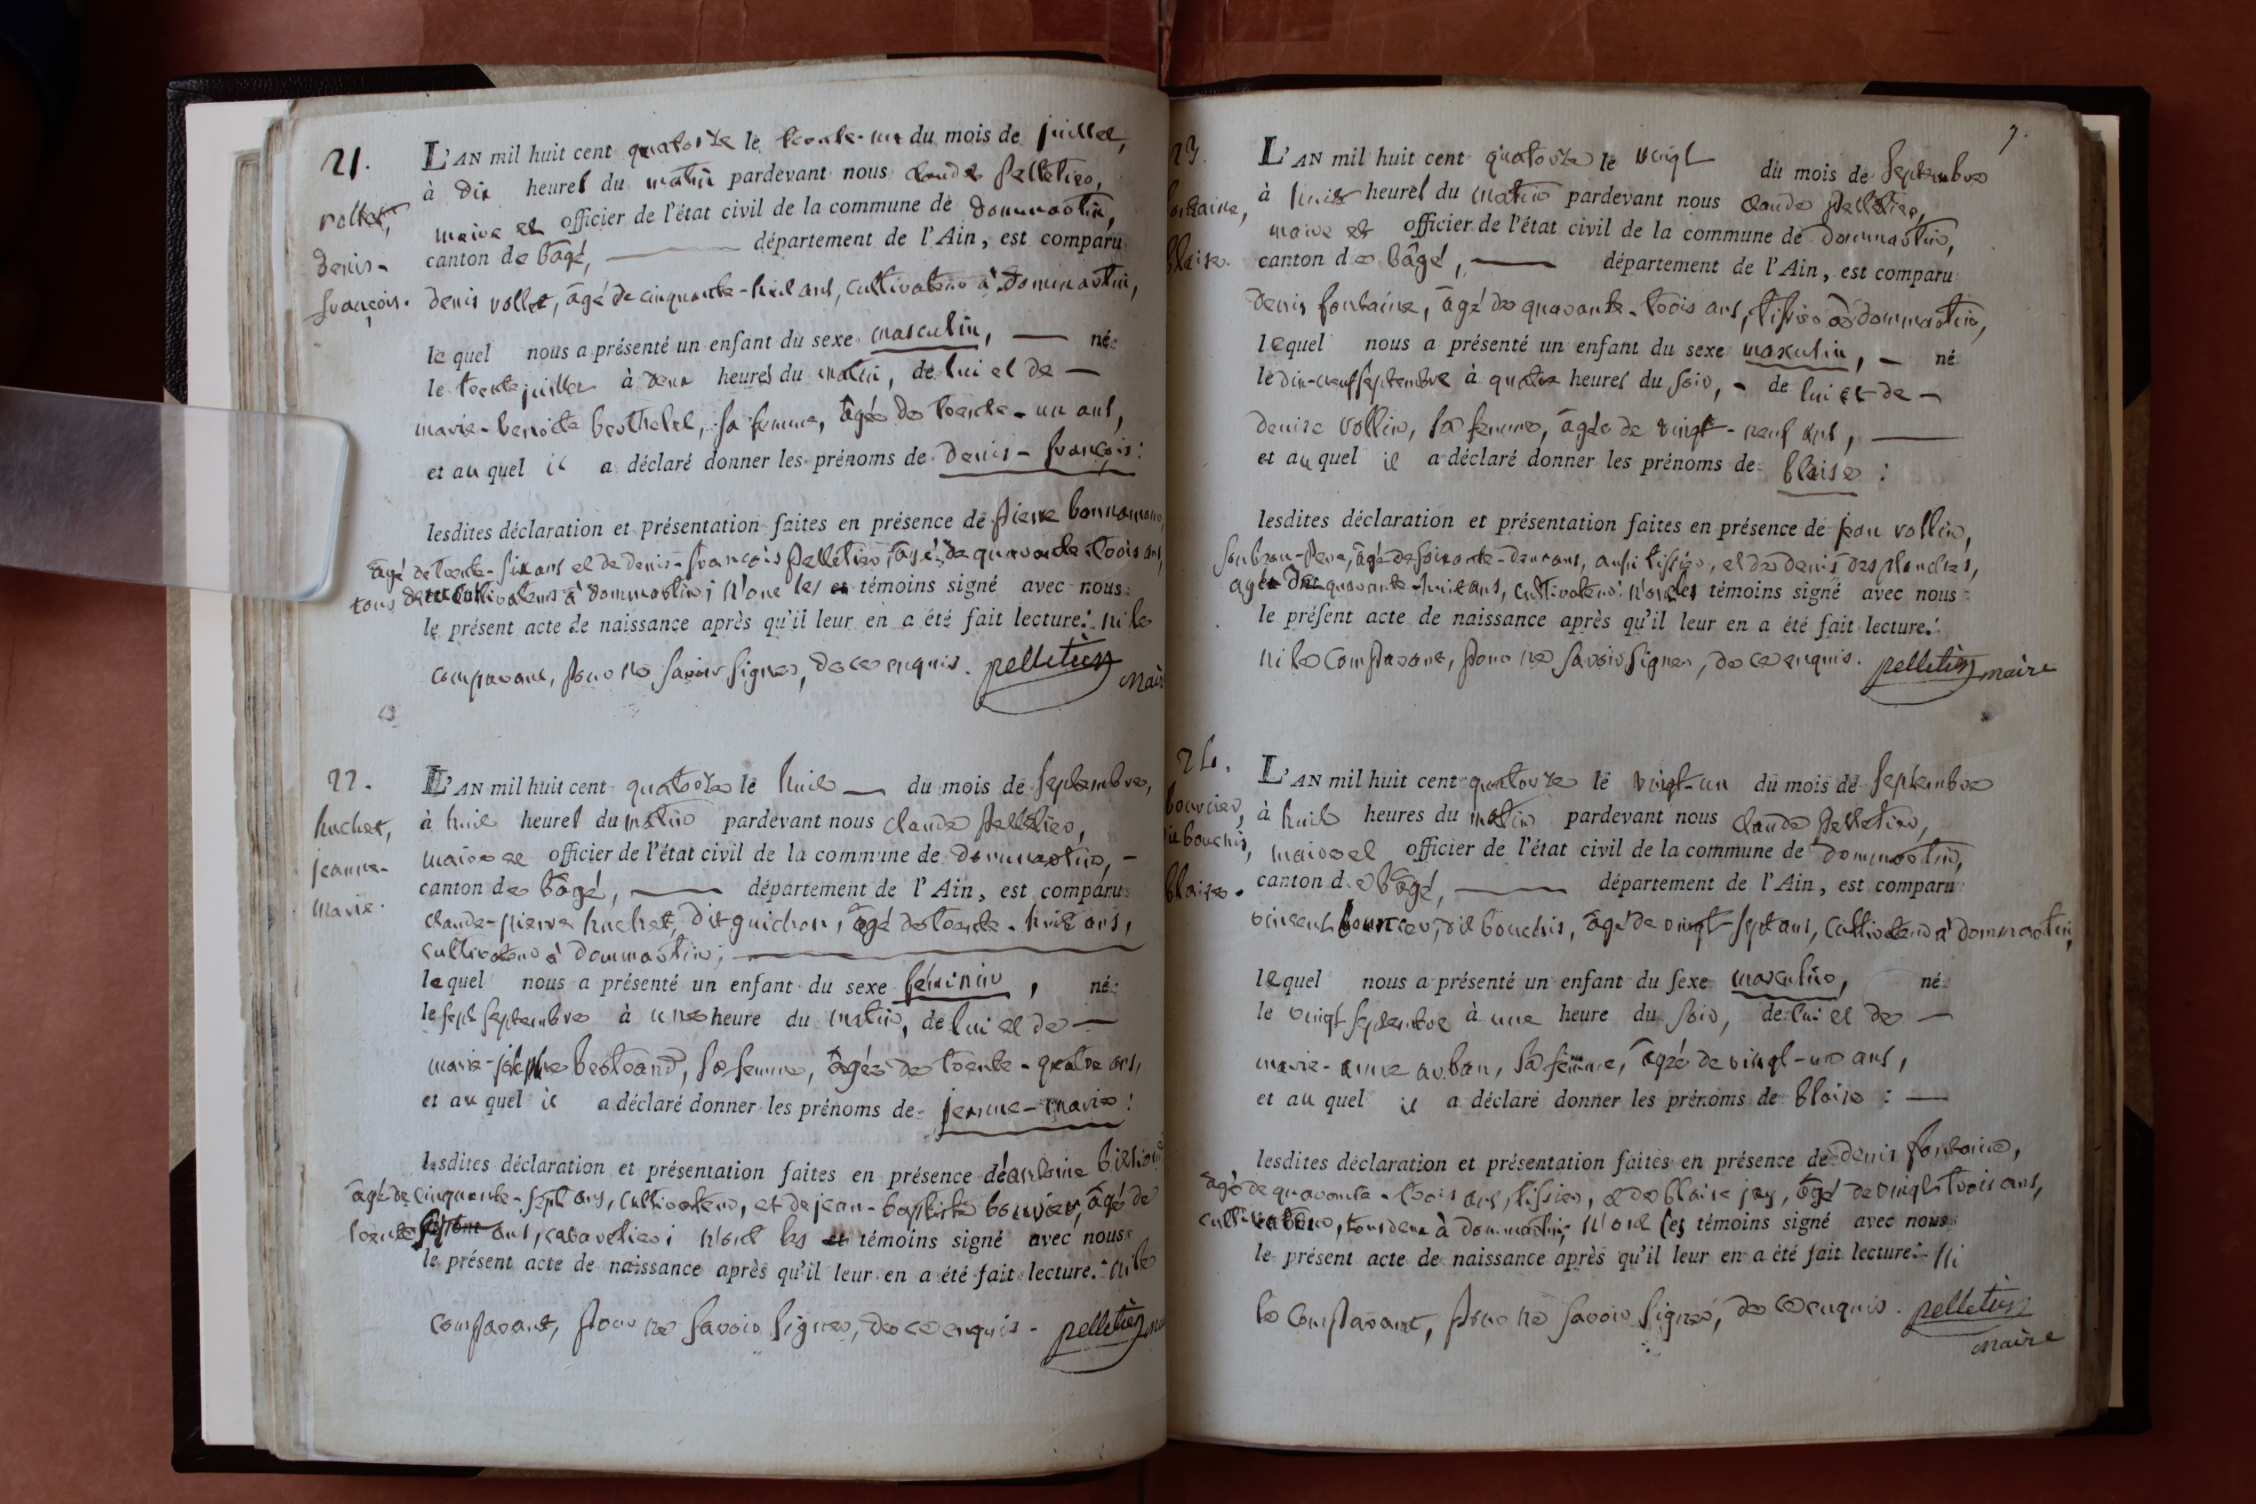 21.
rollet,
denis-
françois.
L'AN mil huit cent quatorze le trente-un du mois de juillet,
à dix heures du matin pardevant nous claude pelletier,
maire et officier de l'état civil de la commune de dommartin,
canton de bâgé, département de l'Ain, est comparu
denis rollet, âgé de cinquante-huit ans, cultivateur à dommartin,
lequel nous a présenté un enfant du sexe masculin, né
le trente juillet à deux heures du matin, de lui et de
marie-benoite berthelet, sa femme, âgée de trente-un ans,
et auquel il a déclaré donner les prénoms de denis-françois:
lesdites déclaration et présentation faites en présence de pierre
âgé de trente-six ans et de denis-françois pelletier, âgé de quarante-trois ans,
tous deux cultivateurs à dommartin; n'ont les témoins signé avec nous
le présent acte de naissance après qu'il leur en a été fait lecture. ni le
comparant, pour ne savoir signer, de ce enquis. pelletier
maire
22.
huchet,
jeanne-
marie.
L'AN mil huit cent quatorze le huit du mois de septembre,
à huit heures du matin pardevant nous claude pelletier,
maire et officier de l'état civil de la commune de dommartin,
canton de bâgé, département de l'Ain, est comparu
claude-pierre huchet, dit guichon, âgé de trente-huit ans,
cultivateur à dommartin;
lequel nous a présenté un enfant du sexe féminin, né
le sept septembre à une heure du matin, de lui et de
marie-josephe bertrand, sa femme, âgée de trente-quatre ans,
et auquel il a déclaré donner les prénoms de jeanne-marie:
lesdites déclaration et présentation faites en présence de antoine
âgé de cinquante-sept ans, cultivateur, et de jean-baptiste bouvier, âgé de
trente ans, cabaretier; n'ont les témoins signé avec nous
le présent acte de naissance après qu'il leur en a été fait lecture. ni le
comparant, pour ne savoir signer, de ce enquis. pelletier
7.
23.
fontaine,
blaise.
L'AN mil huit cent quatorze le vingt du mois de septembre
à huit heures du matin pardevant nous claude pelletier,
maire et officier de l'état civil de la commune de dommartin,
canton de bâgé, département de l'Ain, est comparu
denis fontaine, âgé de quarante-trois ans, tissier à dommartin,
lequel nous a présenté un enfant du sexe masculin, né
le dix-neuf septembre à quatre heures du soir, de lui et de
denise vollin, sa femme, âgée de vingt-neuf ans,
et auquel il a déclaré donner les prénoms de blaise:
lesdites déclaration et présentation faites en présence de jean vollin,
son beau-père, âgé de soixante-deux ans, aussi tissier, et de denis desplanches,
âgé de quarante-huit ans, cultivateur: n'ont les témoins signé avec nous
le présent acte de naissance après qu'il leur en a été fait lecture.
ni le comparant, pour ne savoir signer, de ce enquis. pelletier maire
24.
bourcier,
dit bouchis,
blaise.
L'AN mil huit cent quatorze le vingt-un du mois de septembre
à huit heures du matin pardevant nous claude pelletier,
maire et officier de l'état civil de la commune de dommartin,
canton de bâgé, département de l'Ain, est comparu
vincent bourcier, dit bouchis, âgé de vingt-sept ans, cultivateur à dommartin,
lequel nous a présenté un enfant du sexe masculin, né
le vingt septembre à une heure du soir, de lui et de
marie-anne auban, sa femme, âgée de vingt-un ans,
et auquel il a déclaré donner les prénoms de blaise:
lesdites déclaration et présentation faites en présence de denis fontaine,
âgé de quarante-trois ans, tissier, et de blaise jay, âgé de vingt trois ans,
cultivateur, tous deux à dommartin; n'ont les témoins signé avec nous
le présent acte de naissance après qu'il leur en a été fait lecture. ni
le comparant, pour ne savoir signer, de ce enquis. pelletier
maire